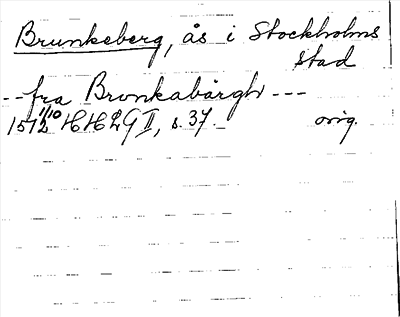 Brunkeberg, ås i Stockholms
stad
-- fra Bronkabärgh ---
1512 1/10 HH LG II, s. 37. orig.